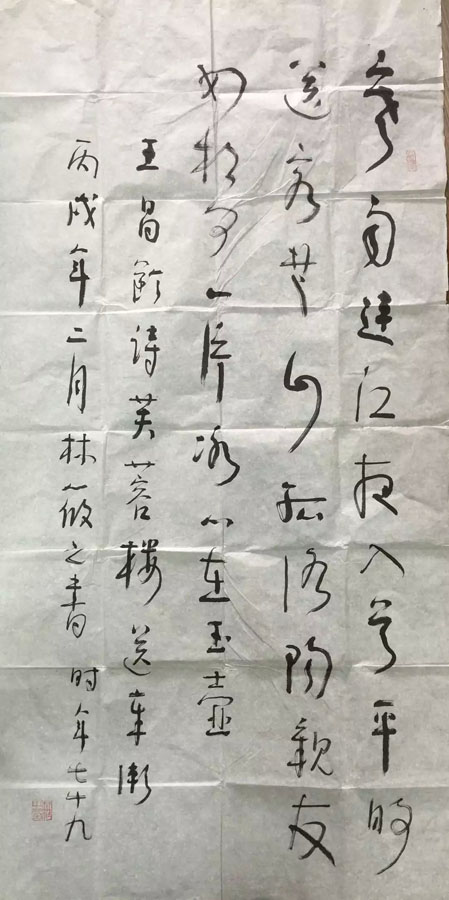 寒雨連江夜入吴平明
送客楚山孤洛陽親友
如相问一片冰心在玉壶
王昌龄诗芙蓉楼送辛渐
丙戌年二月林筱之書 时年七十九